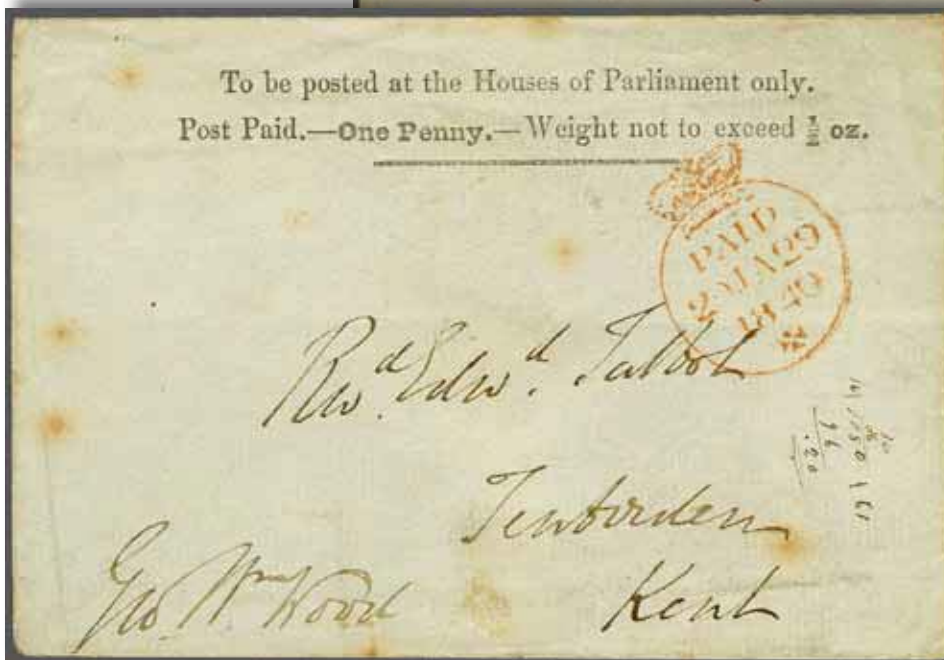 To be posted at the Houses of Parliament only.
Post Paid.—One Penny.—Weight not to exceed ½ oz.
PAID
2 MA 29
1840
Revd. Edwd. Talbot
Tenterden
Kent
Geo. Wm. Wood